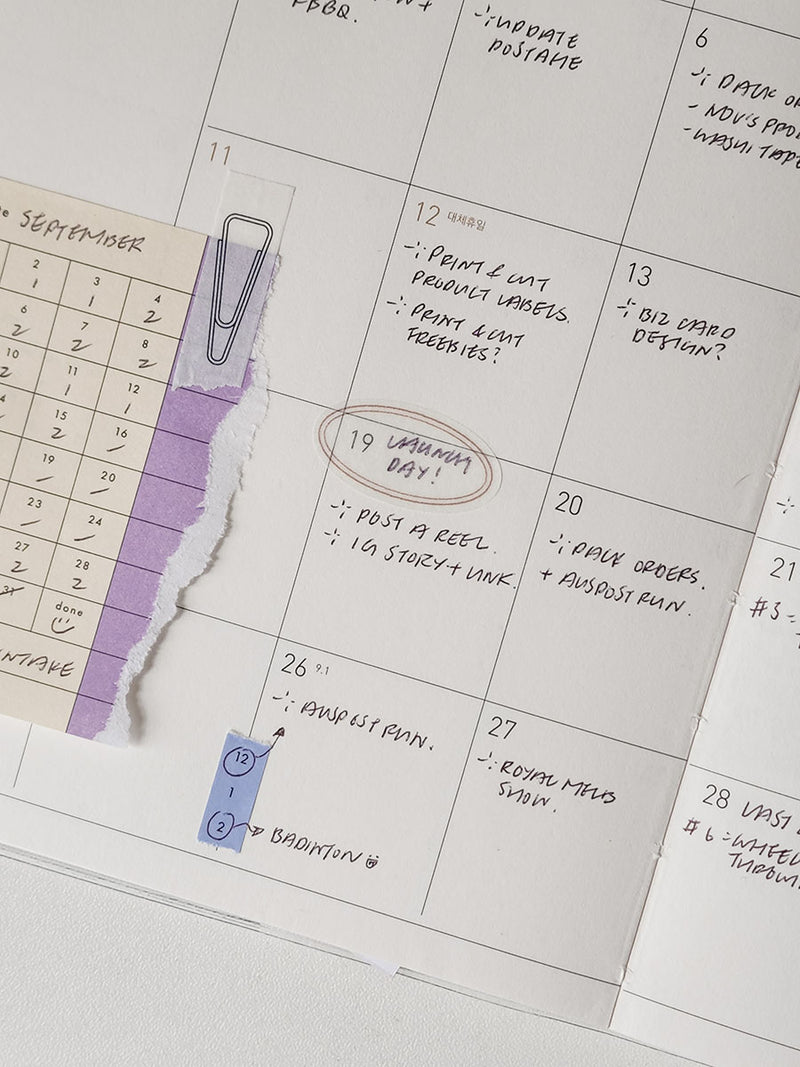 BBQ.
UPDATE
POSTAGE
6
PACK
- NOV'S
- WASHI TAPE
SEPTEMBER
2 3 4
1 1 2
6 7 8
2 2 2
10 11 12
1 1
15 16
2
19 20
23 24
27 28
2 2
31 done
INTAKE
11
12 대체휴일
PRINT & CUT
PRODUCT LABELS.
PRINT & CUT
FREEBIES?
13
BIZ CARD
DESIGN?
19 LAUNCH
DAY!
POST A REEL.
IG STORY + LINK.
20
PACK ORDERS.
+ AUSPOST RUN.
21
#5
26 9.1
AUSPOST RUN.
12
1
2
BADINTON
27
ROYAL MELB
SHOW.
28 LAST
#6 =